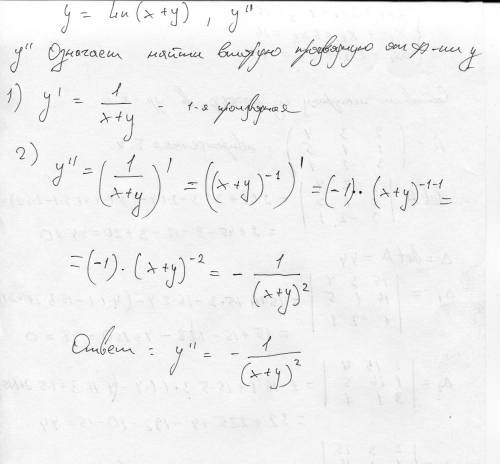 y = ln(x+y), y''
y'' Означает найти вторую производную от ф-ии y
1) y' = 1/(x+y) - 1-я производная
2) y'' = (1/(x+y))' = ((x+y)^-1)' = (-1)·(x+y)^-1-1 =
= (-1)·(x+y)^-2 = - 1/(x+y)^2
Ответ: y'' = - 1/(x+y)^2